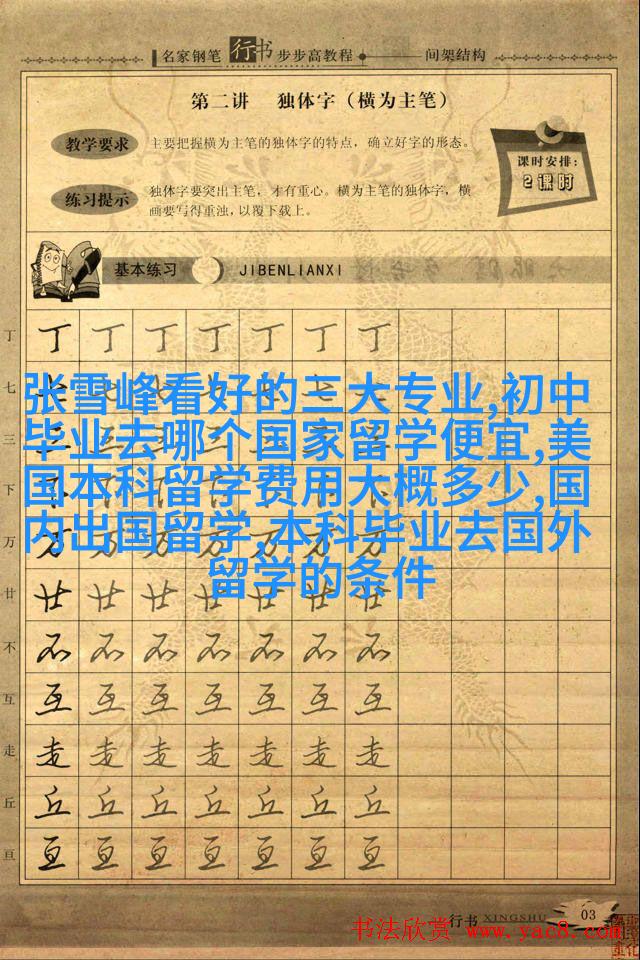 名家钢笔 行书 步步高教程 间架结构
第二讲 独体字（横为主笔）
教学要求 主要把握横为主笔的独体字的特点，确立好字的形态。
课时安排：
2课时
练习提示 独体字要突出主笔，才有重心。横为主笔的独体字，横
画要写得重浊，以覆下载上。
基本练习 JIBENLIANXI
丁 丁 丁 丁 丁 丁 丁 丁
七 七 七 七 七 七 七 七
三 三 三 三 三 三 三 三
下 下 下 下 下 下 下 下
万 万 万 万 万 万 万 万
廿 廿 廿 廿 廿 廿 廿 廿
不 不 不 不 不 不 不 不
互 互 互 互 互 互 互 互
走 走 走 走 走 走 走 走
丘 丘 丘 丘 丘 丘 丘 丘
亘 亘 亘 亘 亘 亘 亘 亘
张雪峰看好的三大专业,初中
毕业去哪个国家留学便宜,美
国本科留学费用大概多少,国
内出国留学,本科毕业去国外
留学的条件
行书 XINGSHU 03
书法欣赏 www.yac8.com